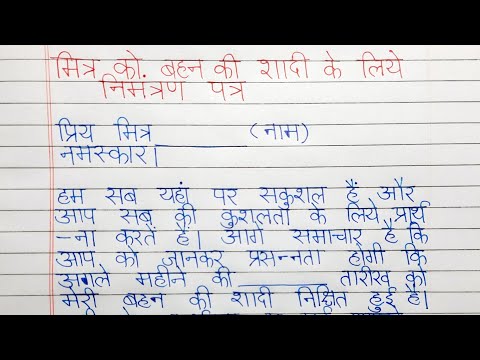 मित्र को बहन की शादी के लिये
निमंत्रण पत्र
प्रिय मित्र __________ (नाम)
नमस्कार।
हम सब यहां पर सकुशल हैं और
आप सब की कुशलता के लिये प्रार्थ
-ना करते हैं। आगे समाचार है कि
आप को जानकर प्रसन्नता होगी कि
अगले महीने की __________ तारीख को
मेरी बहन की शादी निश्चित हुई है।